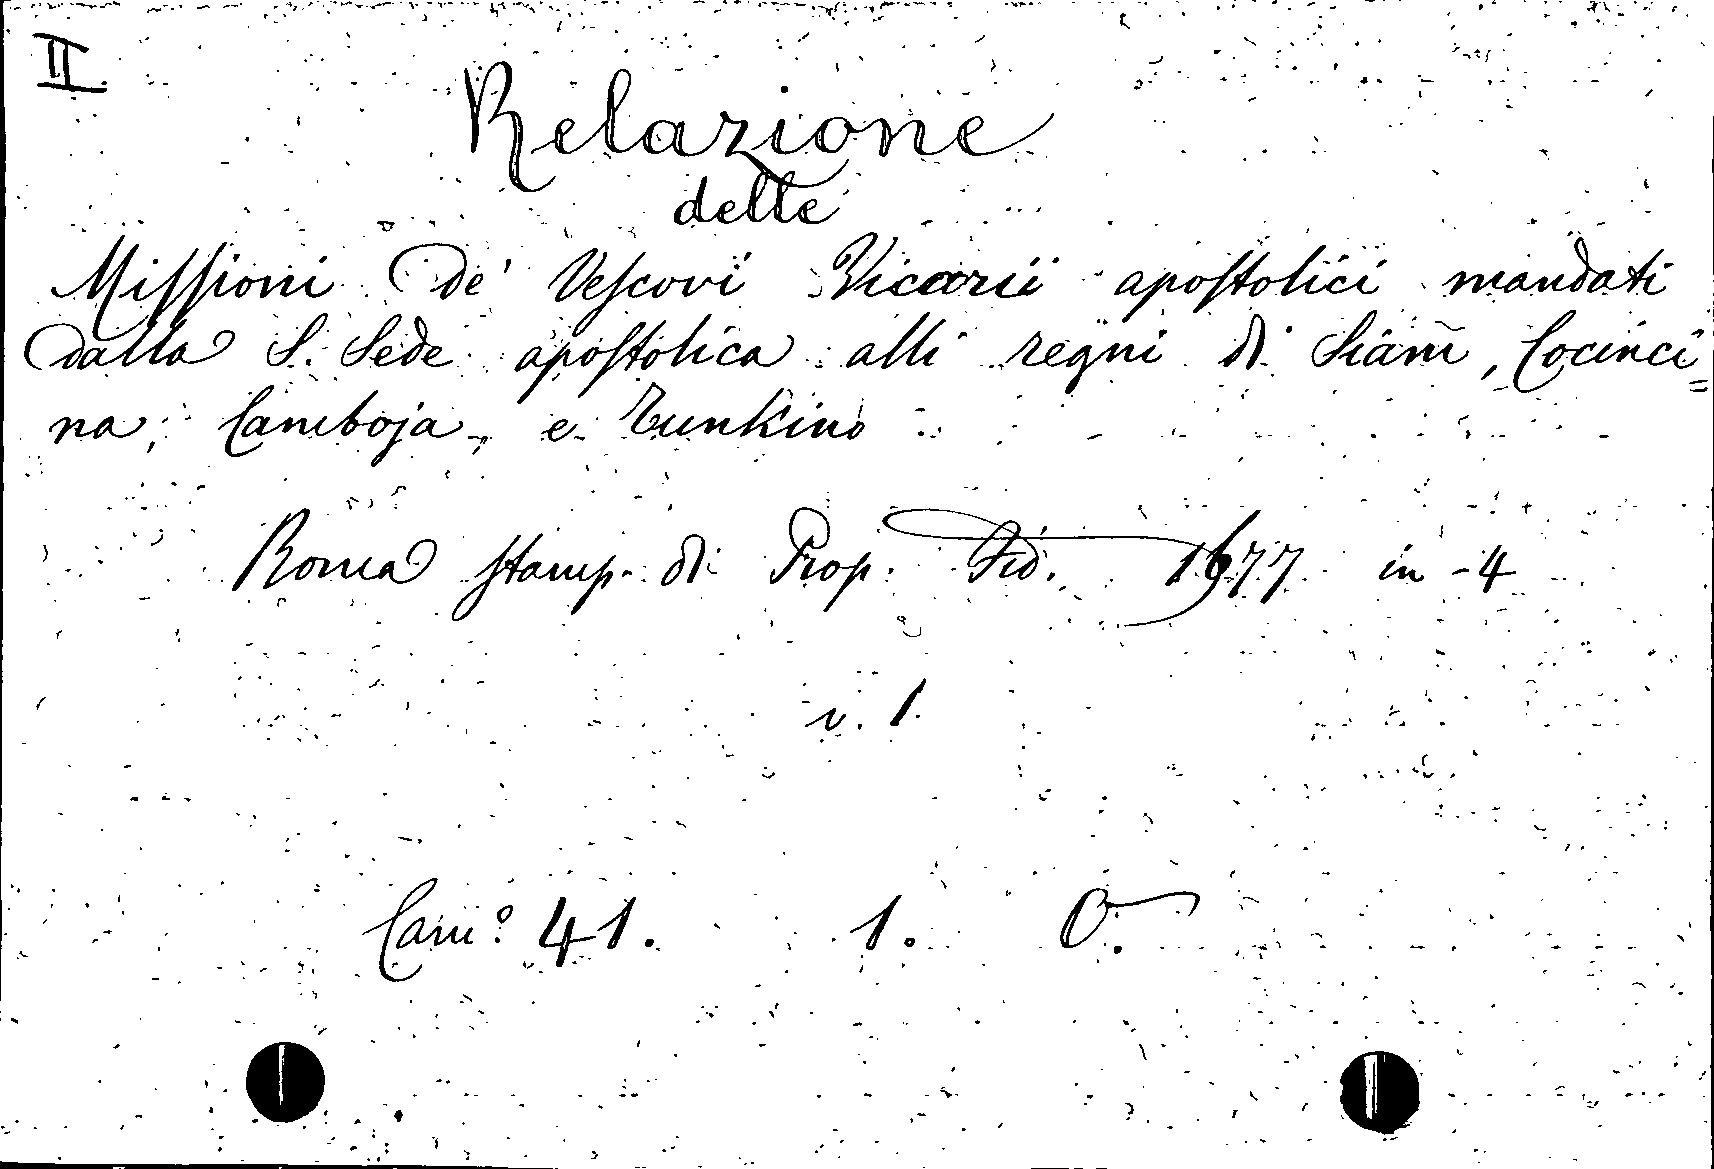 II
Relazione
delle
Missioni de' Vescovi Vicarii apostolici mandati
dalla S. Sede apostolica alli regni di Siam, Cocinci=
na, Camboja, e Tunkino
Roma stamp. di Prop. Fid. 1677 in-4
v. 1.
Cam.º 41. 1. O.